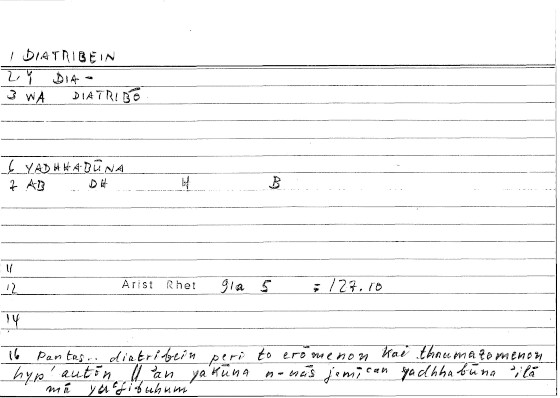 1 DIATRIBEIN
2. Y DIA-
3 WA DIATRIBŌ
6 YADHHABŪNA
7 AB DH H B
11
12 Arist Rhet 91a 5 = 127.10
14
16 Pantas.. diatribein peri to erōmenon kai thaumazomenon
hyp' autōn // 'an yakūna n-nās jamīcan yadhhabūna 'ilā
mā yucjibuhum